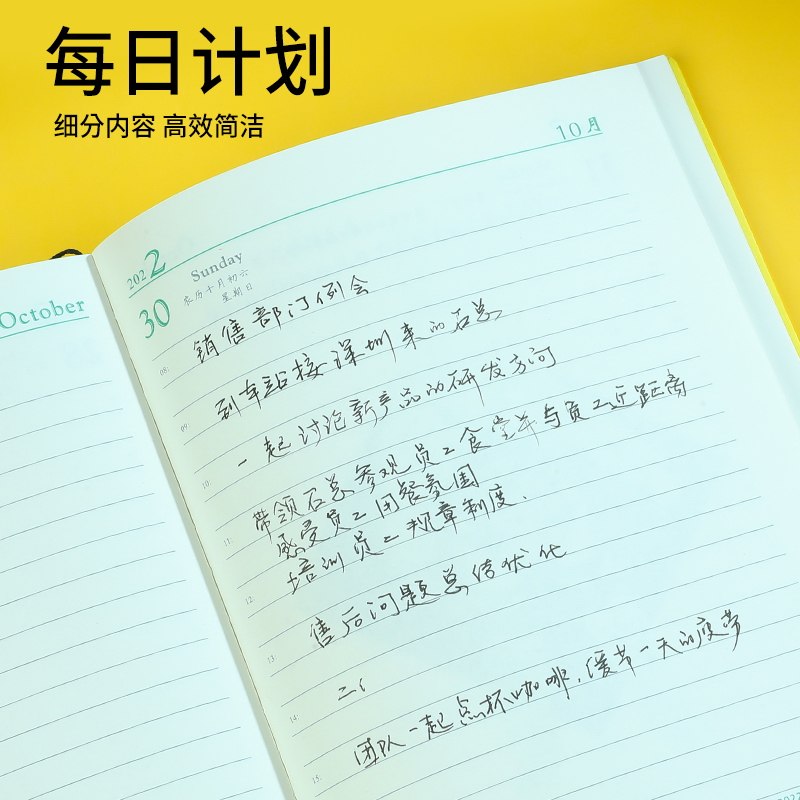 每日计划
细分内容 高效简洁
10月
2022
Sunday
农历十月初六
星期日
30
October
08:
销售部门例会
09:
到车站接深圳来的石总
10:
一起讨论新产品的研发方向
11:
带领石总参观员工食堂并与员工近距离
感受员工用餐氛围
12:
培训员工规章制度.
13:
售后问题总结优化
14:
15:
团队一起点杯咖啡,缓节一天的疲劳